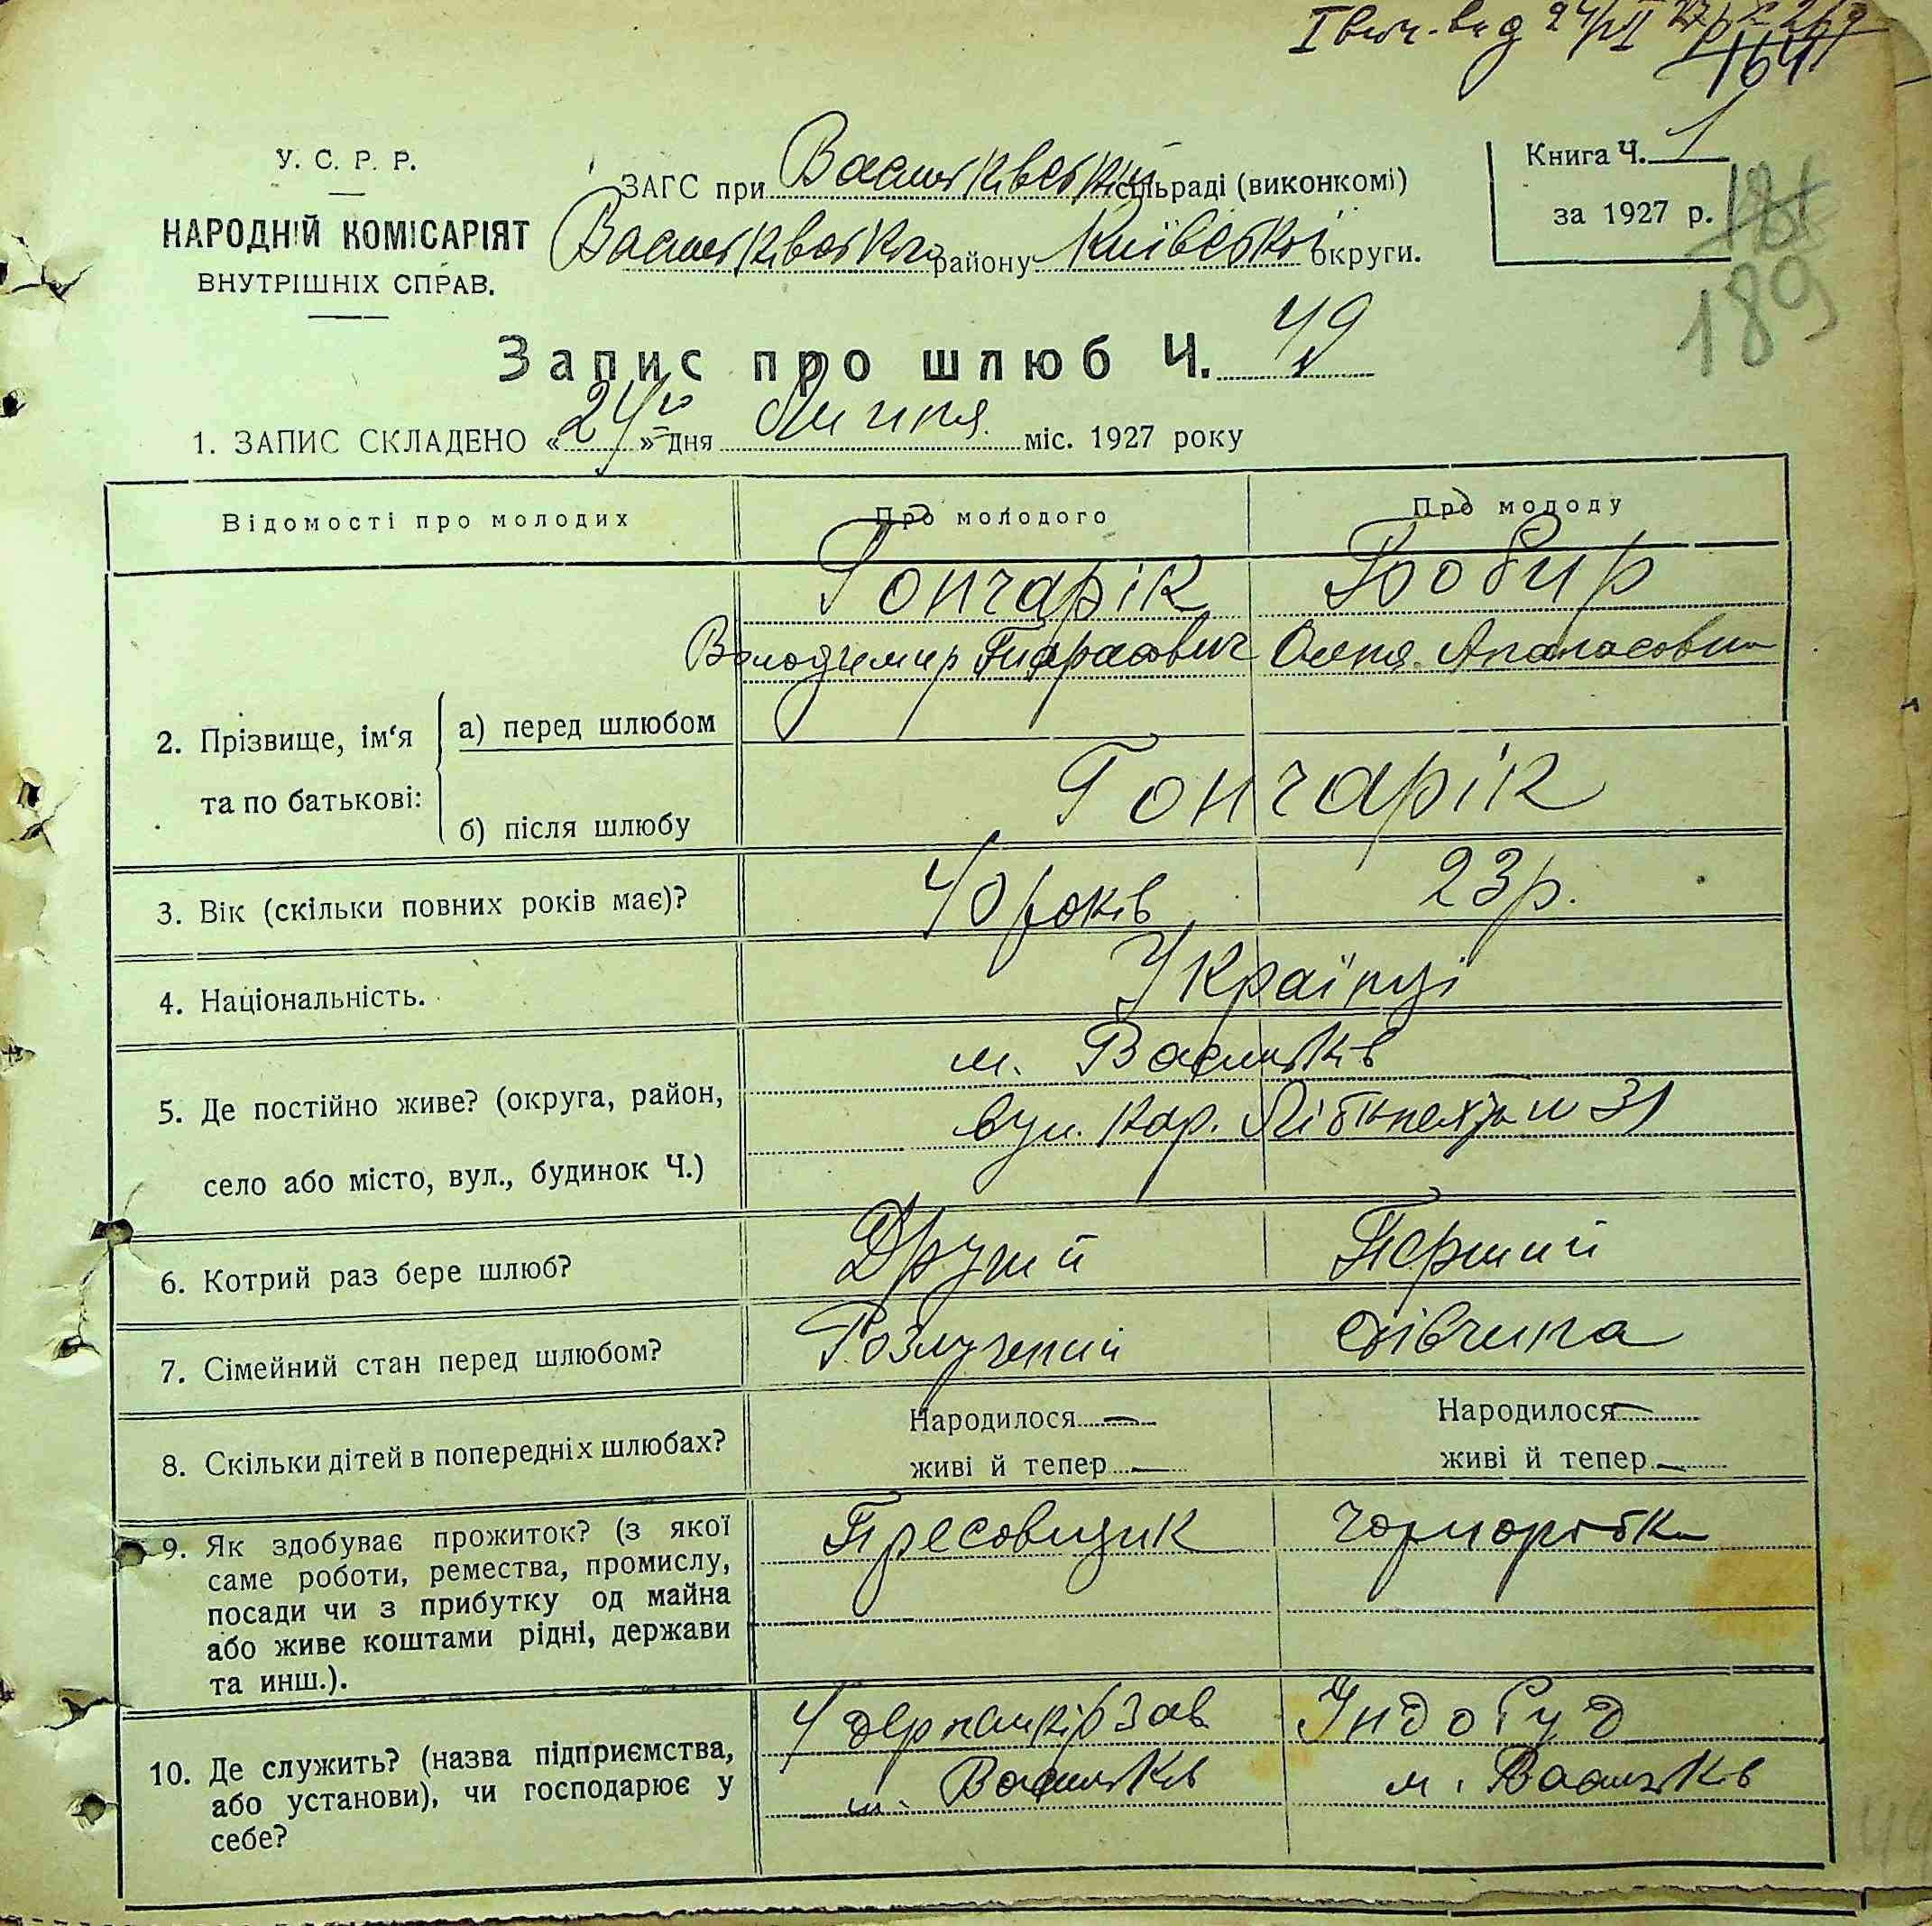 164
У. С. Р. Р.
НАРОДНІЙ КОМІСАРІЯТ
ВНУТРІШНІХ СПРАВ.
ЗАГС при Васильківській сільраді (виконкомі)
Васильківського району Київської округи.
Книга Ч. 1
за 1927 р.
181
189
Запис про шлюб Ч. 49
1. ЗАПИС СКЛАДЕНО «24го» дня Липня міс. 1927 року
Відомості про молодих
Про молодого
Про молоду
2. Прізвище, ім'я та по батькові:
а) перед шлюбом
Гончарік
Володимир Тарасович
Бобир
Олена Апанасовна
б) після шлюбу
Гончарік
3. Вік (скільки повних років має)?
40 років
23 р.
4. Національність.
Українці
5. Де постійно живе? (округа, район,
село або місто, вул., будинок Ч.)
м. Васильків
вул. Кар. Лібкнехта н 31
6. Котрий раз бере шлюб?
Другий
Перший
7. Сімейний стан перед шлюбом?
Розлучений
дівчина
8. Скільки дітей в попередніх шлюбах?
Народилося —
живі й тепер —
Народилося —
живі й тепер —
9. Як здобуває прожиток? (з якої
саме роботи, ремества, промислу,
посади чи з прибутку од майна
або живе коштами рідні, держави
та инш.).
Пресовщик
Чорноробка
10. Де служить? (назва підприємства,
або установи), чи господарює у
себе?
м. Васильків
Индобуд
м. Васильків